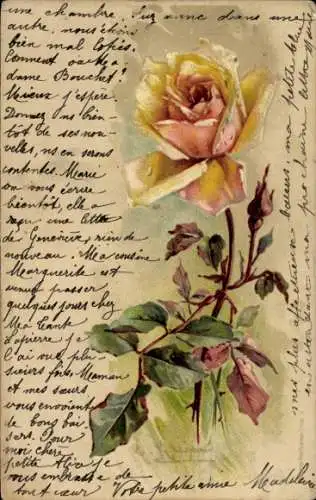 une chambre. Suzanne dans une
autre, nous étions
bien mal logés.
Comment va
dame Bouchet?
Mieux j'espère.
Donnez ns bien-
tôt de ses nou-
velles, ns en serons
contentes. Marie
va nous écrire
bientôt, elle a
reçu une lettre
de Geneviève, rien de
nouveau. Ma cousine
Marguerite est
venue passer
quelques jours chez
Ma tante
je
l'ai vue plu-
sieurs fois. Maman
et mes sœurs
vous envoient
de bons bai-
sers. Pour
moi chère
petite Alice je
vous embrasse de
tout cœur
Votre petite amie Madeleine
mes plus affectueux baisers ma petite
en attendant une prochaine lettre